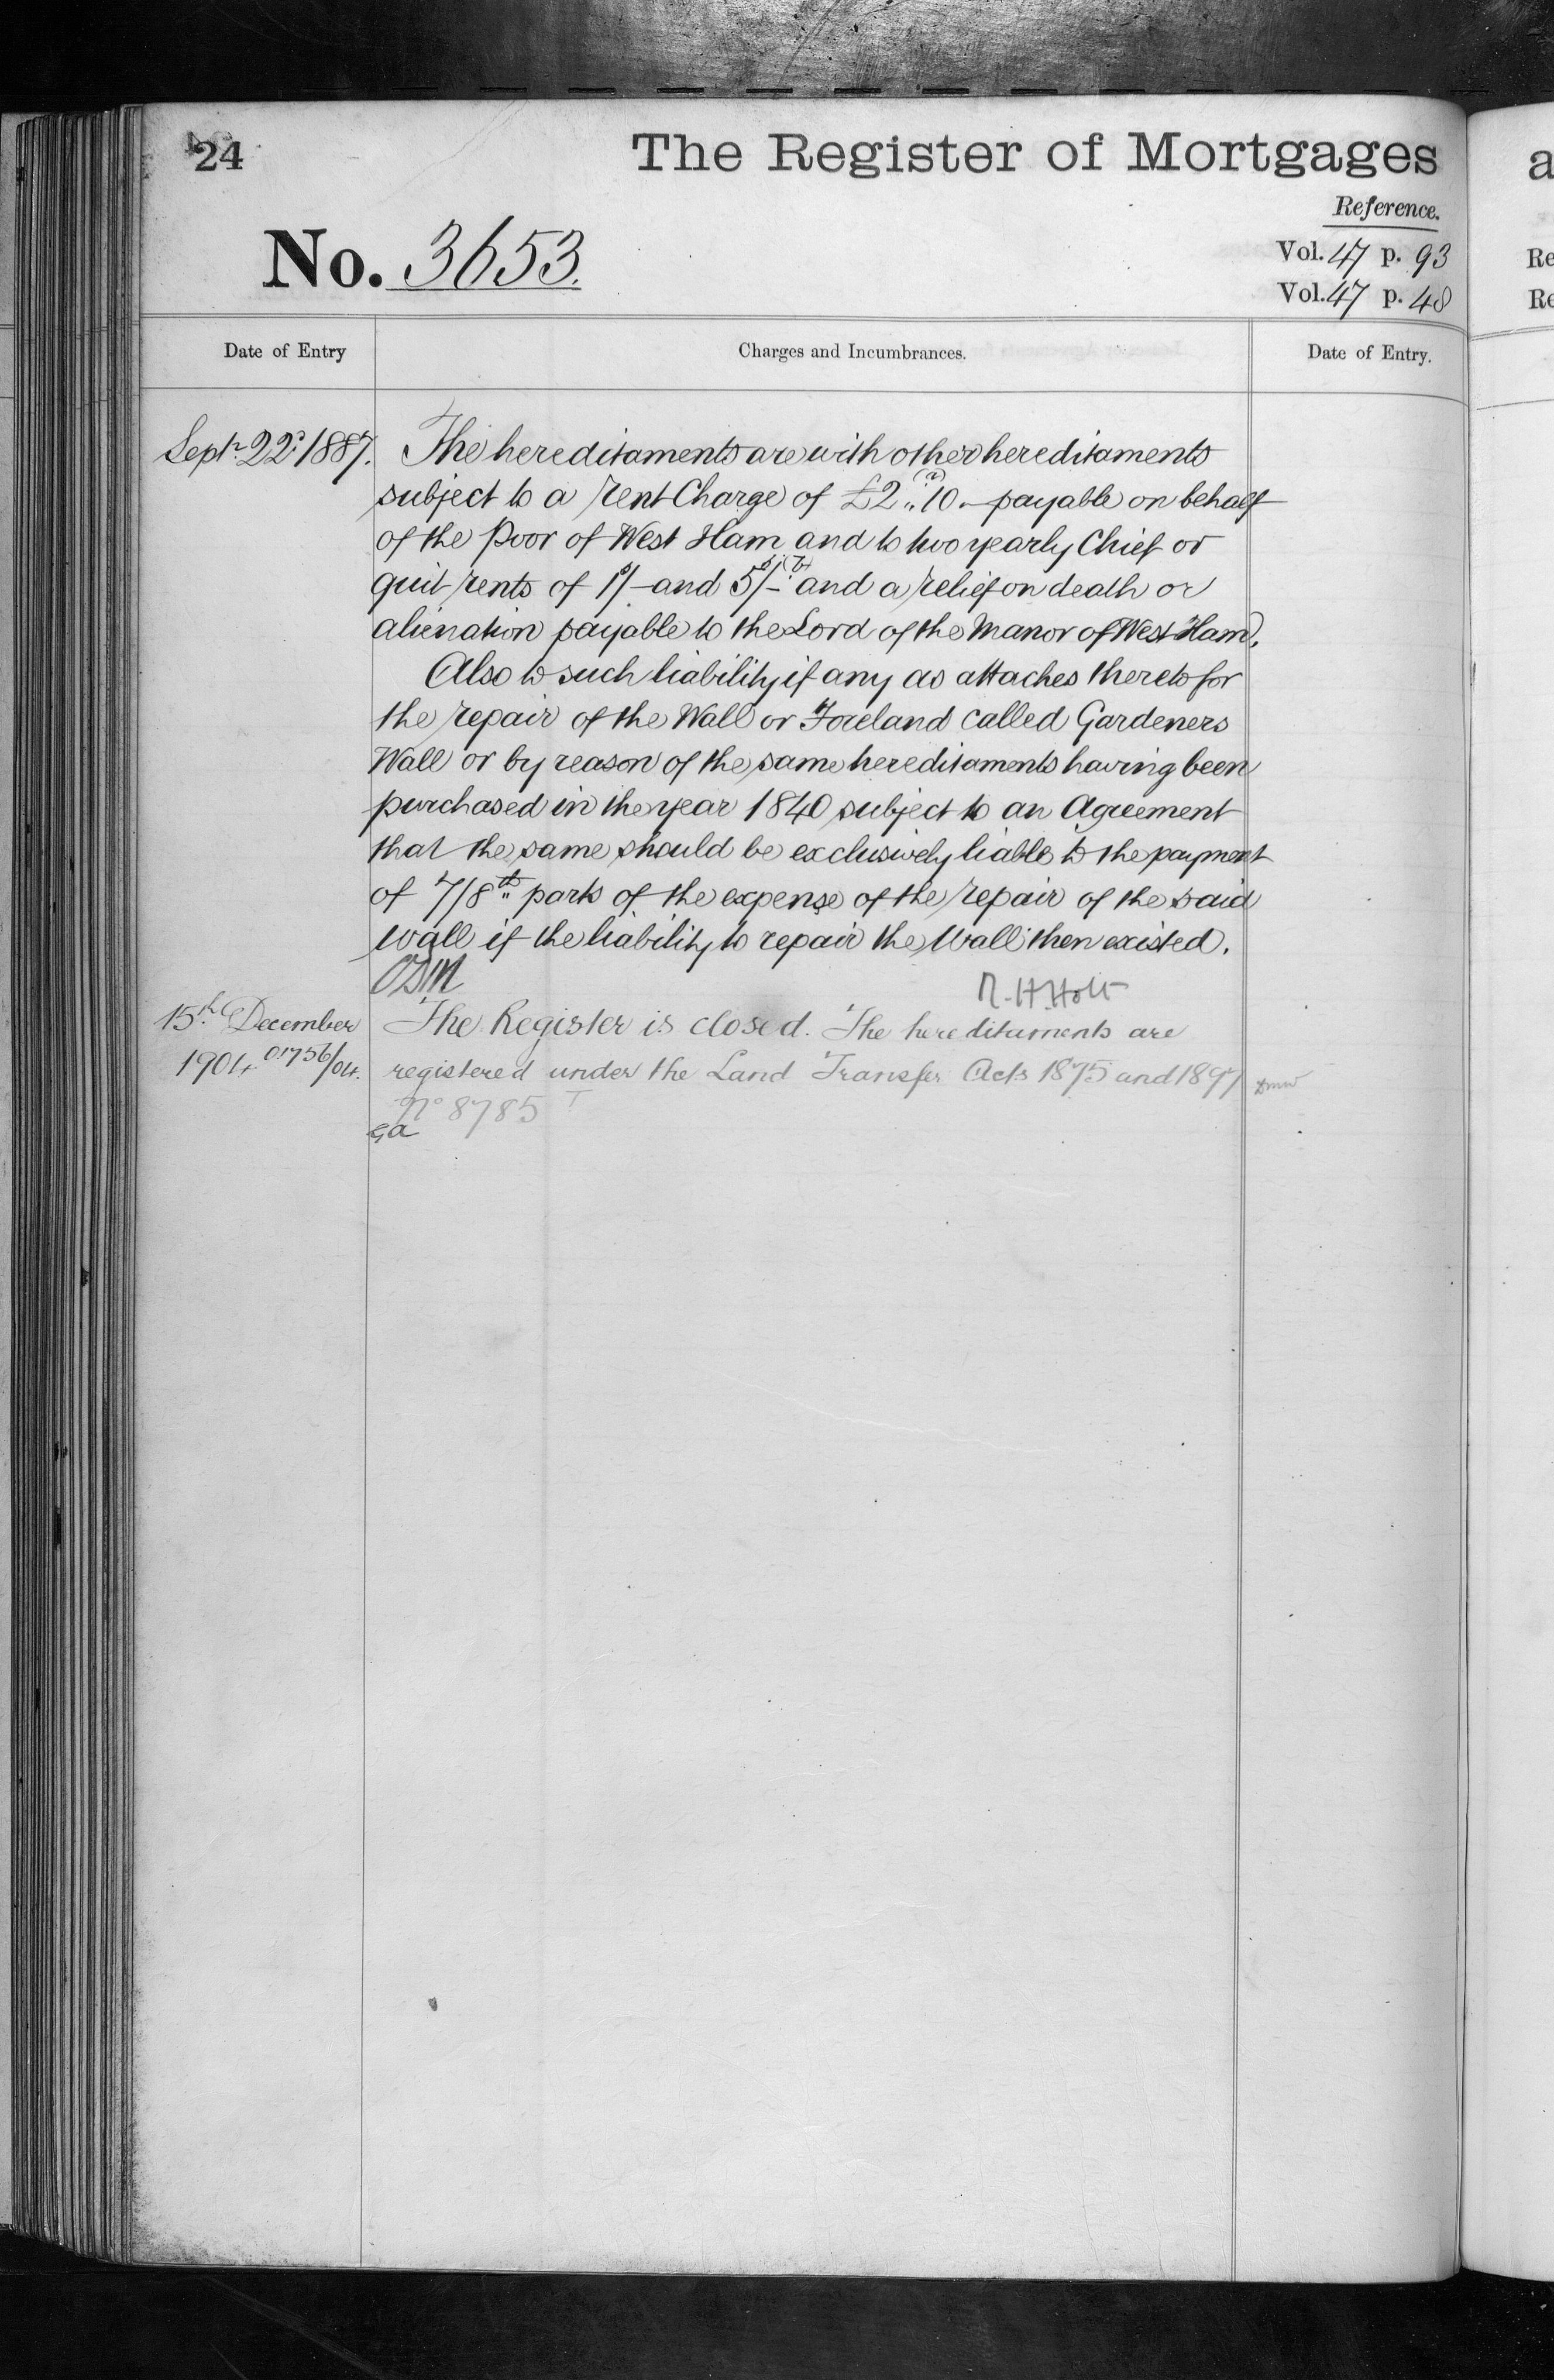 24
The Register of Mortgages
Reference.
No. 3653.
Vol. 47 p. 93
Vol. 47 p. 48
Date of Entry
Charges and Incumbrances.
Date of Entry.
Septr. 22d. 1887.
The hereditaments are with other hereditaments
subject to a rent Charge of £2..10.— payable on behalf
of the Poor of West Ham and to two yearly Chief or
quit rents of 1s/- and 5s/- and a relief on death or
alienation payable to the Lord of the Manor of West Ham.
Also to such liability if any as attaches thereto for
the repair of the Wall or Foreland called Gardeners
Wall or by reason of the same hereditaments having been
purchased in the year 1840 subject to an Agreement
that the same should be exclusively liable to the payment
of 7/8ths parts of the expense of the repair of the said
Wall if the liability to repair the Wall then existed.
R. H. Holt
15th December
1904 01756/04.
The Register is closed. The hereditaments are
registered under the Land Transfer Acts 1875 and 1897
No 8785
a
Re
Re